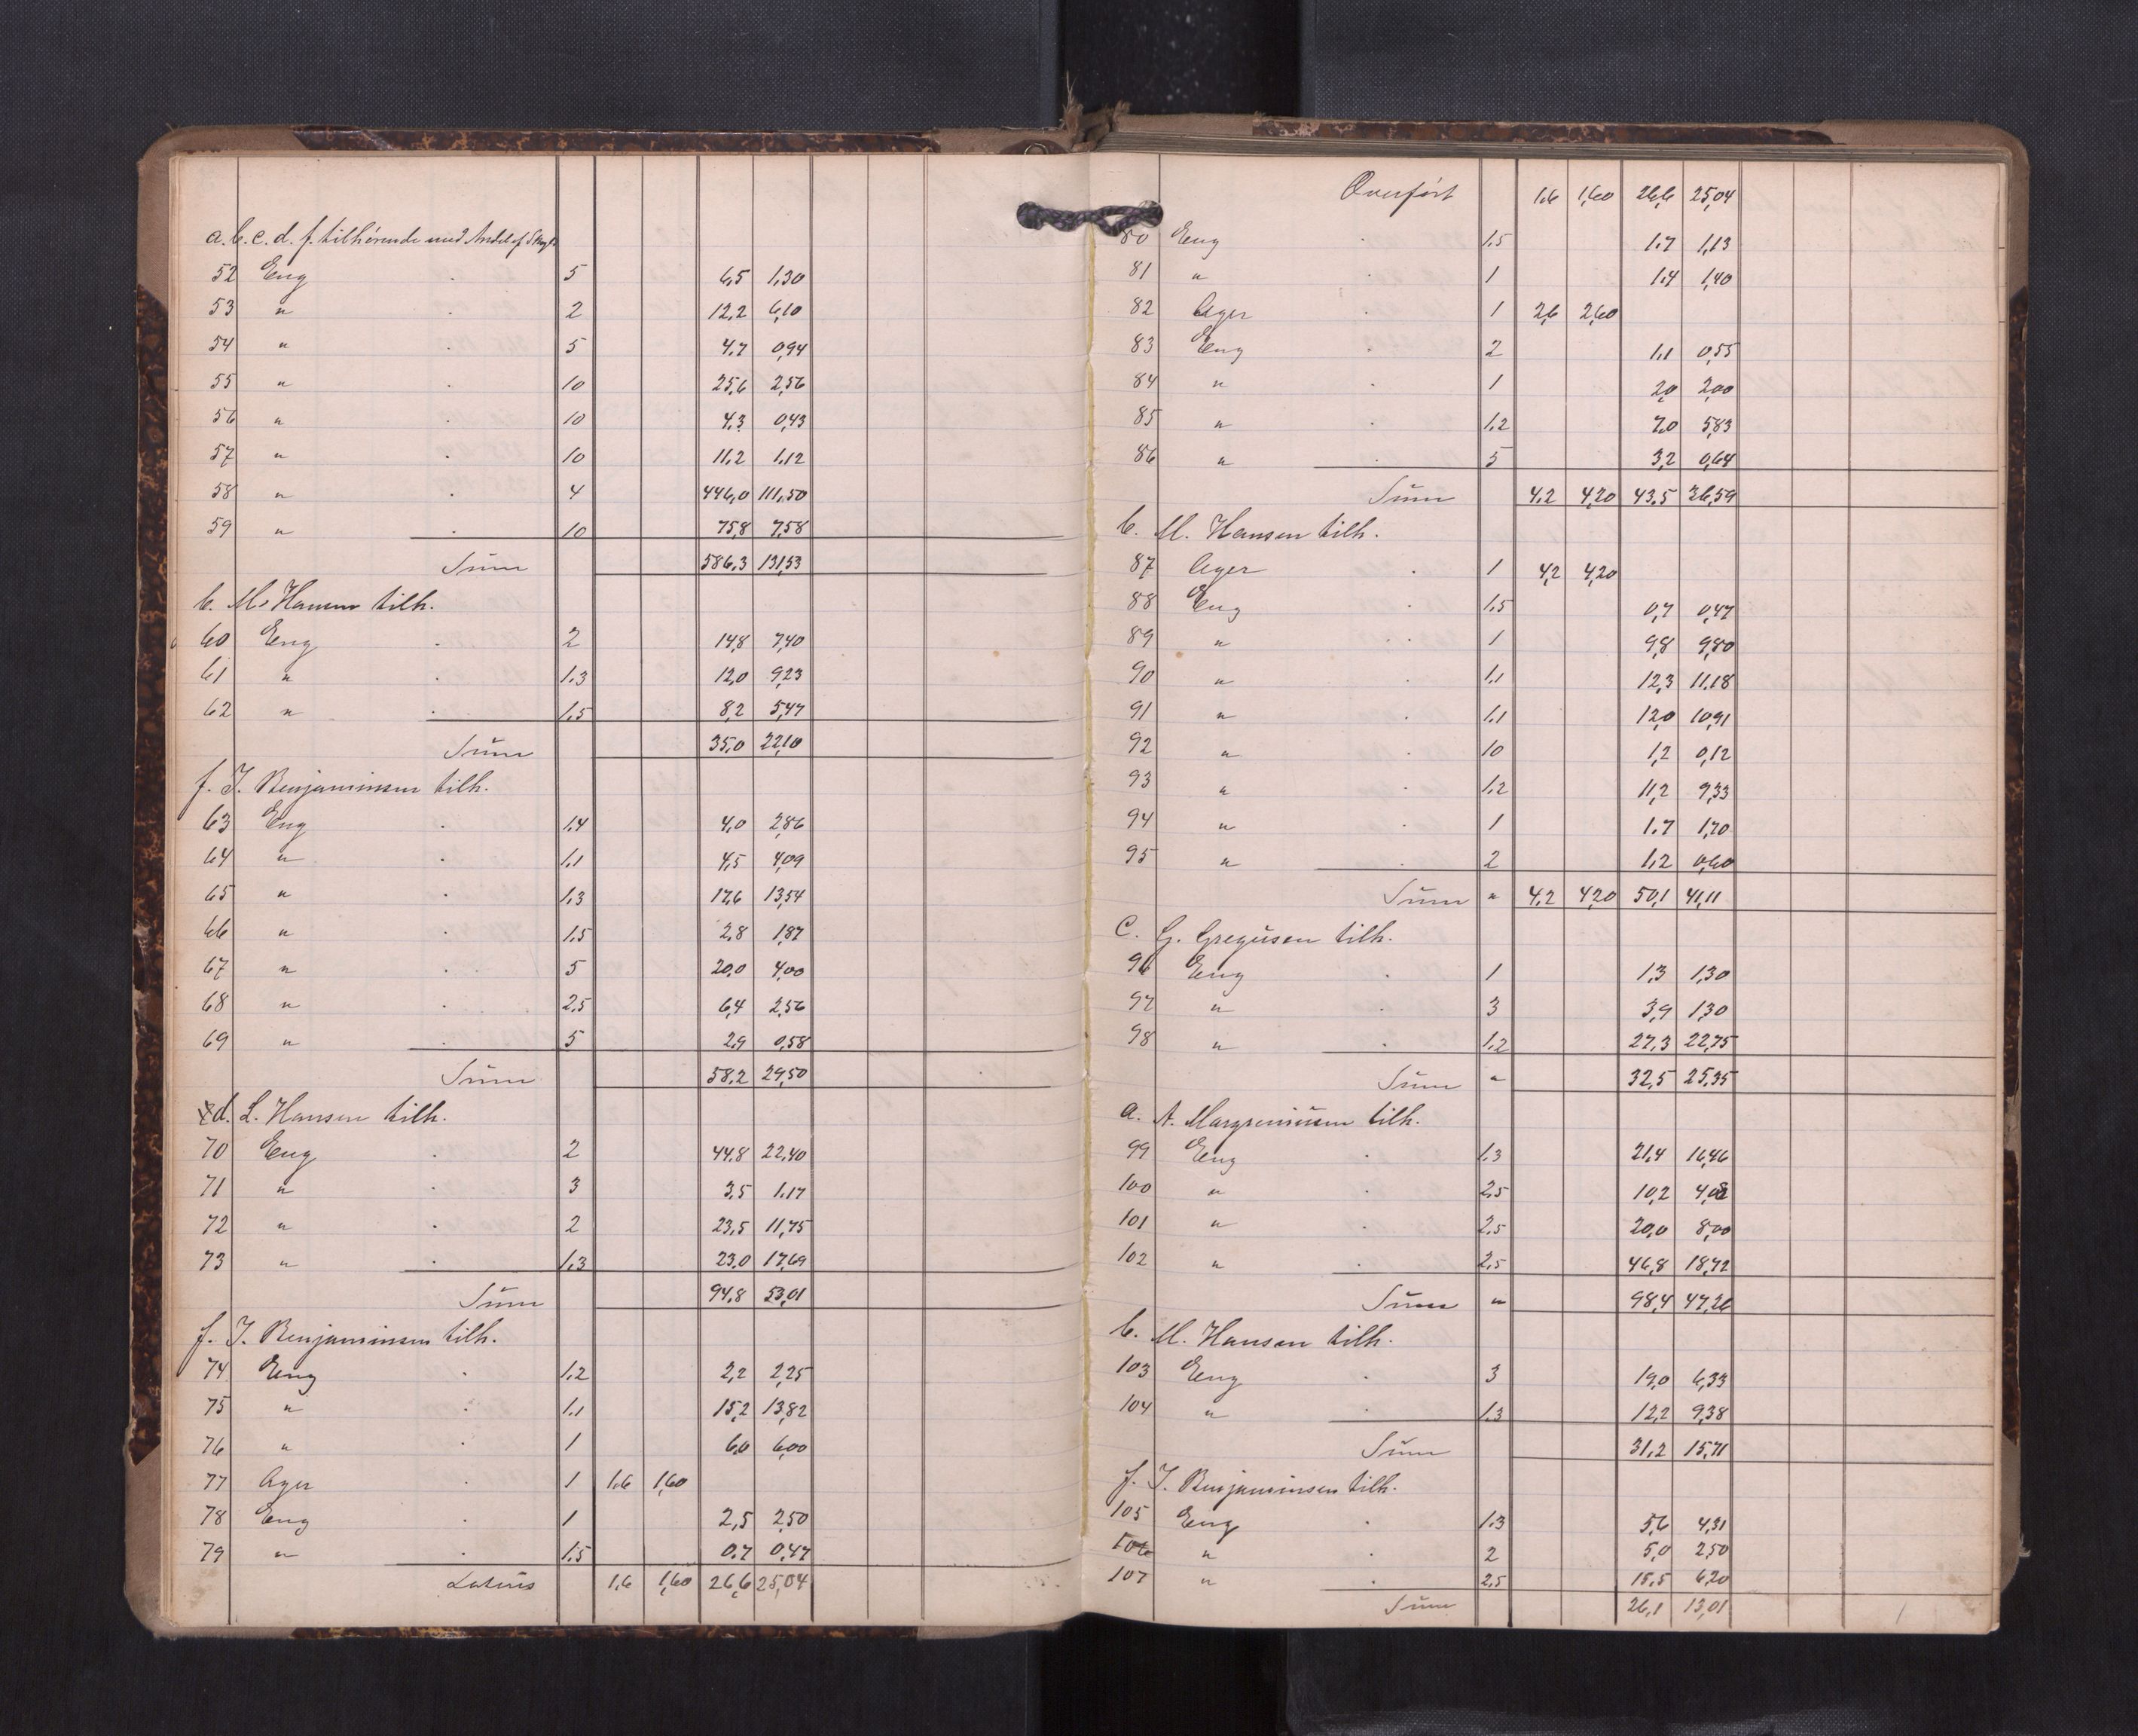 a. b. c. d. f. tilhørende med Andel af
52 Eng . 5 6,5 1,30
53 " . 2 12,2 6,10
54 " . 5 4,7 0,94
55 " . 10 25,6 2,56
56 " . 10 4,3 0,43
57 " . 10 11,2 1,12
58 " . 4 446,0 111,50
59 " . 10 75,8 7,58
Sum 586,3 131,53
b. M. Hansen tilh.
60 Eng . 2 14,8 7,40
61 " . 1,3 12,0 9,23
62 " . 1,5 8,2 5,47
Sum 35,0 22,10
f. I. Benjaminsen tilh.
63 Eng . 1,4 4,0 2,86
64 " . 1,1 4,5 4,09
65 " . 1,3 17,6 13,54
66 " . 1,5 2,8 1,87
67 " . 5 20,0 4,00
68 " . 2,5 6,4 2,56
69 " . 5 2,9 0,58
Sum 58,2 29,50
d. L. Hansen tilh.
70 Eng . 2 44,8 22,40
71 " . 3 3,5 1,17
72 " . 2 23,5 11,75
73 " . 1,3 23,0 17,69
Sum 94,8 53,01
f. I. Benjaminsen tilh.
74 Eng . 1,2 2,2 2,25
75 " . 1,1 15,2 13,82
76 " . 1 6,0 6,00
77 Ager . 1 1,6 1,60
78 Eng . 1 2,5 2,50
79 " . 1,5 0,7 0,47
Latus 1,6 1,60 26,6 25,04
Overført 1,6 1,60 26,6 25,04
80 Eng . 1,5 1,7 1,13
81 " . 1 1,4 1,40
82 Ager . 1 2,6 2,60
83 Eng . 2 1,1 0,55
84 " . 1 2,0 2,00
85 " . 1,2 7,0 5,83
86 " . 5 3,2 0,64
Sum 4,2 4,20 43,5 36,59
b. M. Hansen tilh.
87 Ager . 1 4,2 4,20
88 Eng . 1,5 0,7 0,47
89 " . 1 9,8 9,80
90 " . 1,1 12,3 11,18
91 " . 1,1 12,0 10,91
92 " . 10 1,2 0,12
93 " . 1,2 11,2 9,33
94 " . 1 1,7 1,70
95 " . 2 1,2 0,60
Sum " 4,2 4,20 50,1 41,11
c. G. Gregusen tilh.
96 Eng . 1 1,3 1,30
97 " . 3 3,9 1,30
98 " . 1,2 27,3 22,75
Sum " 32,5 25,35
a. A. Margreniusen tilh.
99 Eng . 1,3 21,4 16,46
100 " . 2,5 10,2 4,08
101 " . 2,5 20,0 8,00
102 " . 2,5 46,8 18,72
Sum " 98,4 47,26
b. M. Hansen tilh.
103 Eng . 3 19,0 6,33
104 " . 1,3 12,2 9,38
Sum 31,2 15,71
f. I. Benjaminsen tilh.
105 Eng . 1,3 5,6 4,31
106 " . 2 5,0 2,50
107 " . 2,5 15,5 6,20
Sum 26,1 13,01